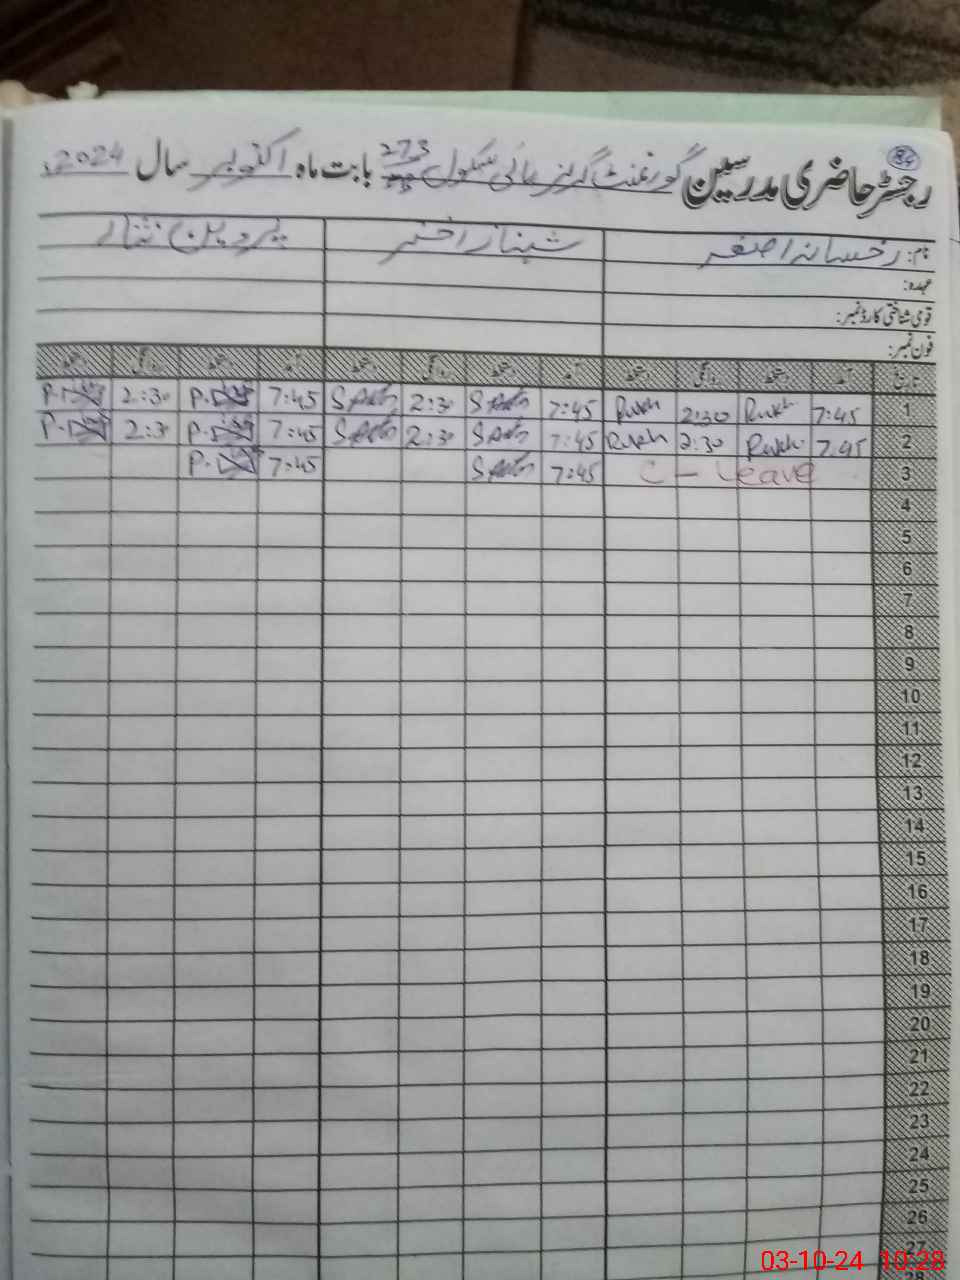 84
رجسٹر حاضری مدرسین گورنمنٹ گرلز ہائی سکول 273 بابت ماہ اکتوبر سال 2024ء
نام: رخسانہ اصغر شہناز اختر پروین نثار
عہدہ:
قومی شناختی کارڈ نمبر:
فون نمبر:
تاریخ آمد دستخط روانگی دستخط آمد دستخط روانگی دستخط آمد دستخط روانگی دستخط
1 7:45 Rukh 2:30 Rukh 7:45 2:30 7:45 2:30
2 7:45 Rukh 2:30 Rukh 7:45 2:30 7:45 2:30
3 C - Leave 7:45 7:45
4
5
6
7
8
9
10
11
12
13
14
15
16
17
18
19
20
21
22
23
24
25
26
27
28
03-10-24 10:28